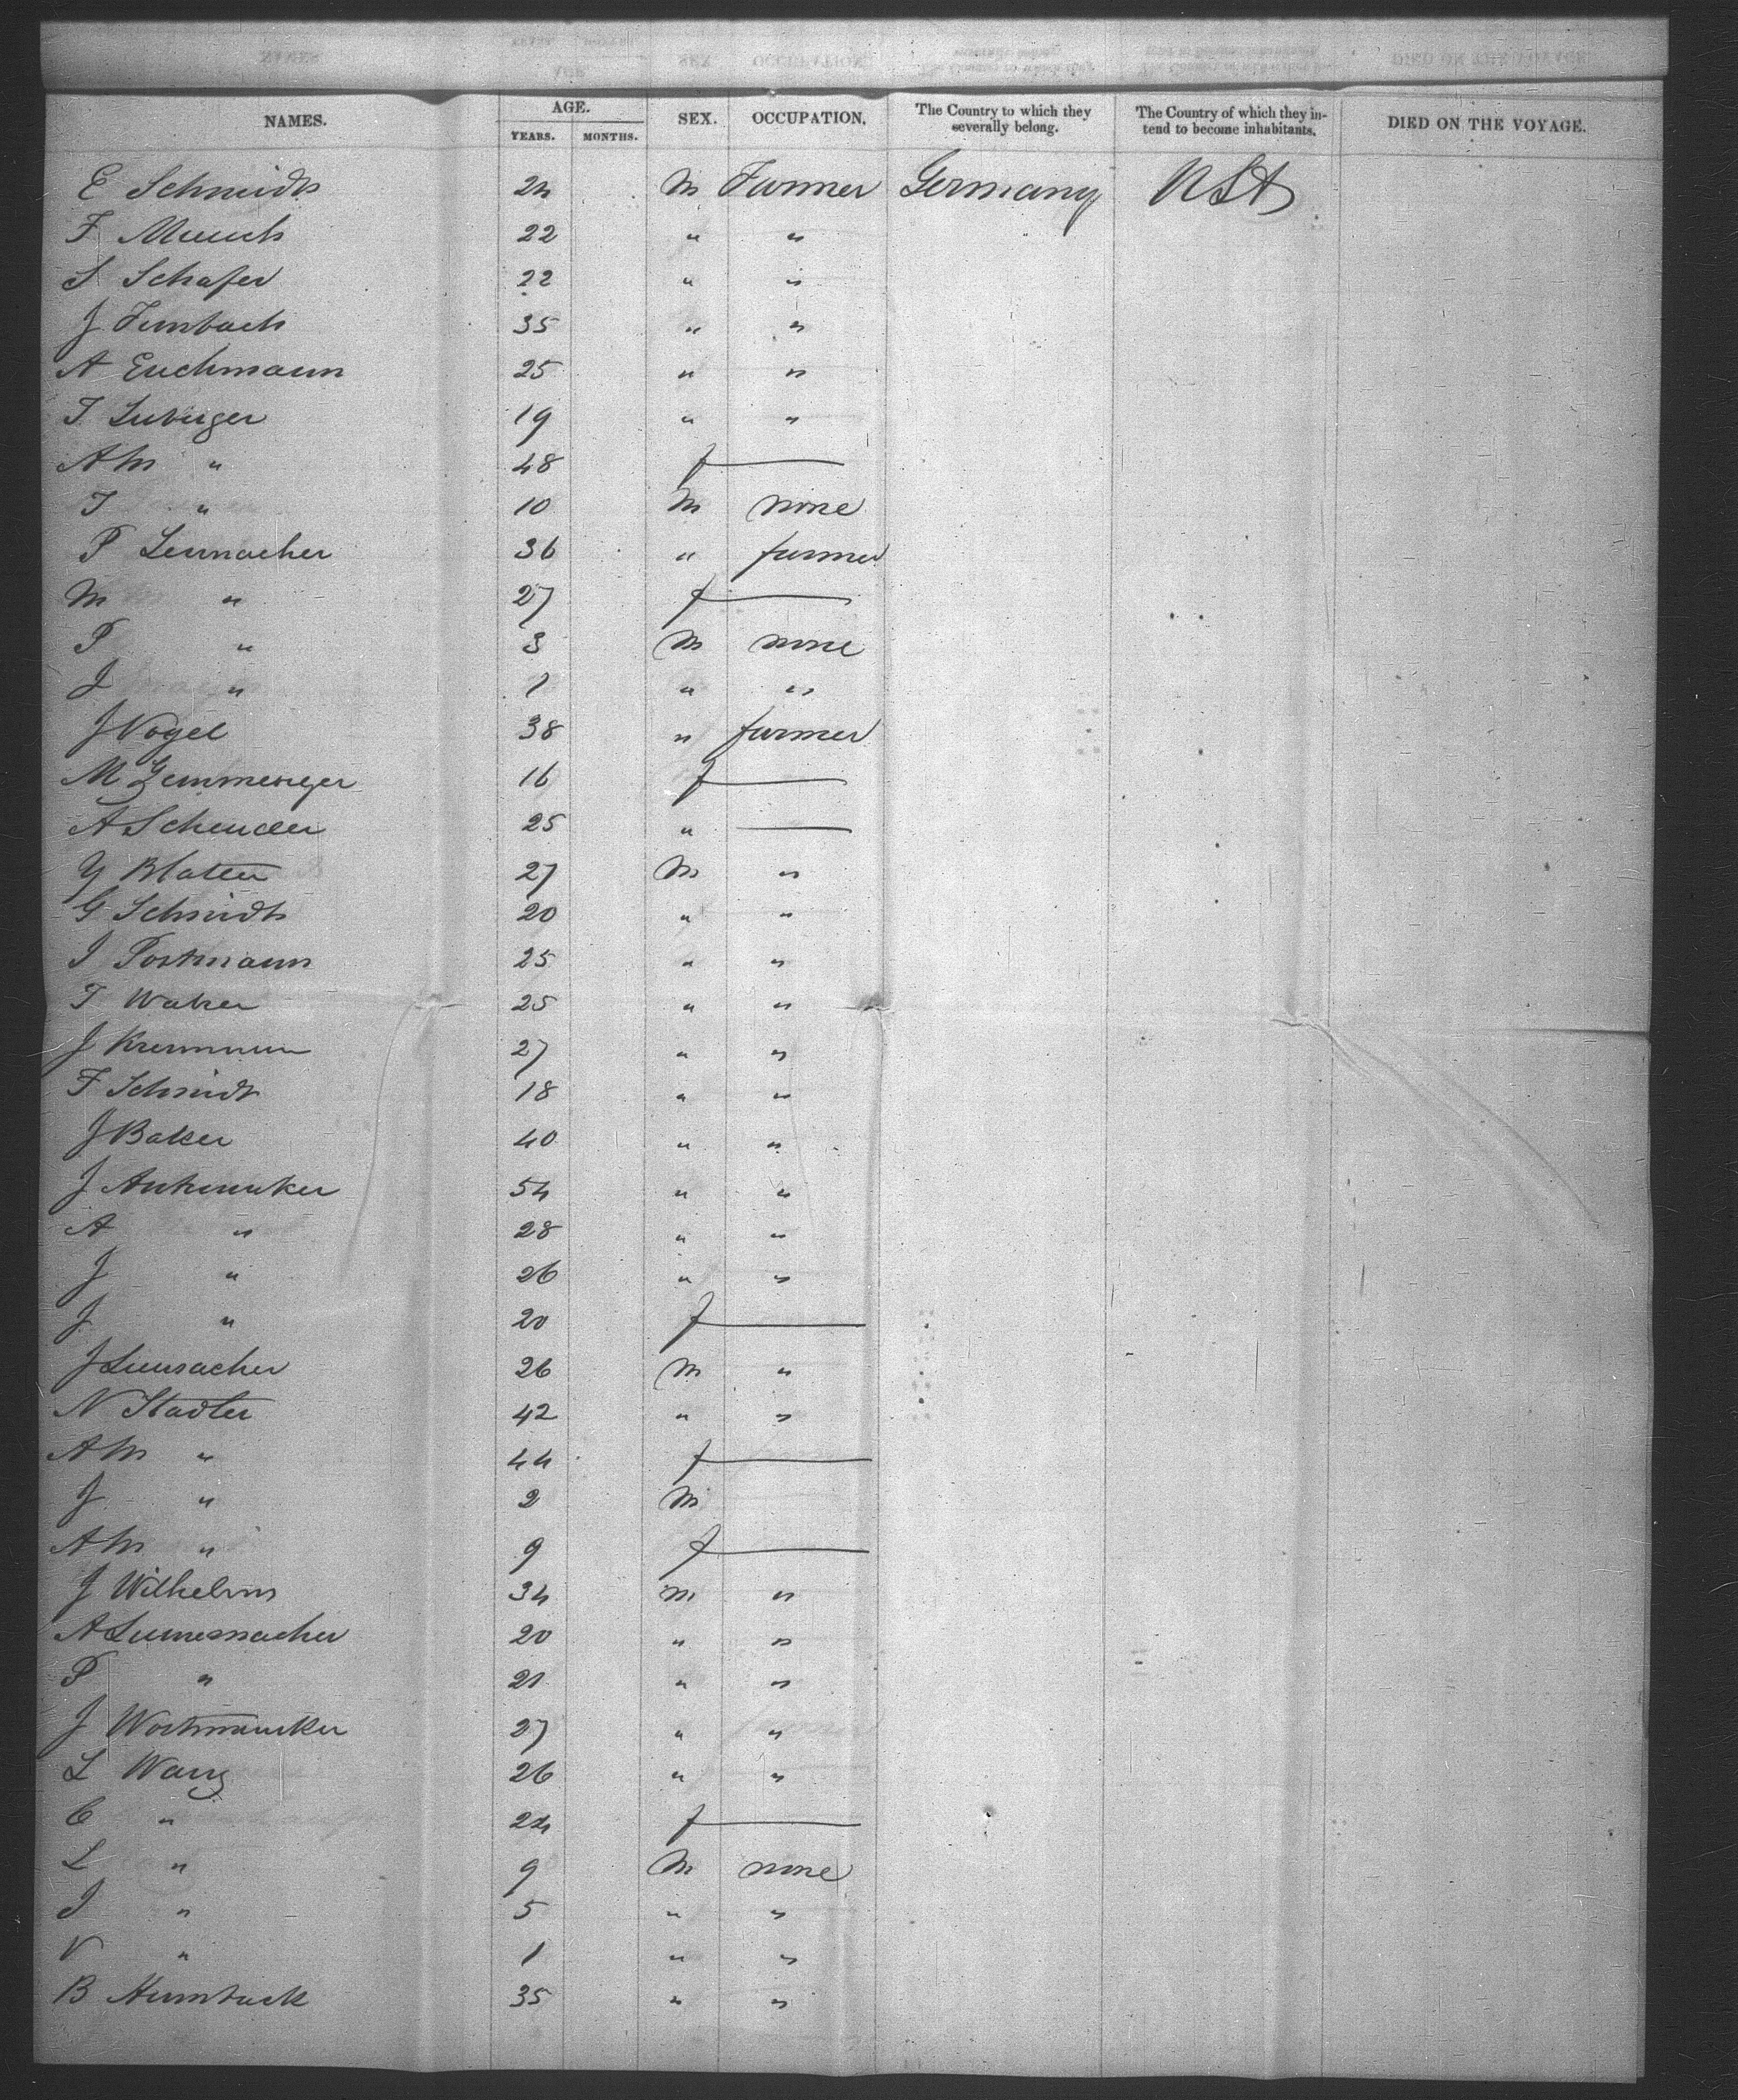 NAMES. AGE. SEX. OCCUPATION. The Country to which they severally belong. The Country of which they intend to become inhabitants. DIED ON THE VOYAGE.
YEARS. MONTHS.
E Schmidt 24 M Farmer Germany USA
F Muench 22 " "
S Schafer 22 " "
J 35 " "
A Euchmann 25 " "
T 19 " "
AM " 48 f
T " 10 M none
P 36 " farmer
M " 27 f
P " 3 M none
J " 1 " "
J Vogel 38 " farmer
M 16 f
A 25 "
Y Blatter 27 M "
G Schmidt 20 " "
J Portmann 25 " "
T Waker 25 " "
J 27 " "
F Schmidt 18 " "
J Baker 40 " "
J 54 " "
A " 28 " "
J " 26 " "
J " 20 f
J 26 M "
N Stadler 42 " "
AM " 44 f
J " 2 M
AM " 9 f
J Wilhelms 34 M "
A 20 " "
P " 21 " "
J 27 " "
L Wang 26 " "
C " 24 f
L " 9 M none
J " 5 " "
V " 1 " "
B 35 " "